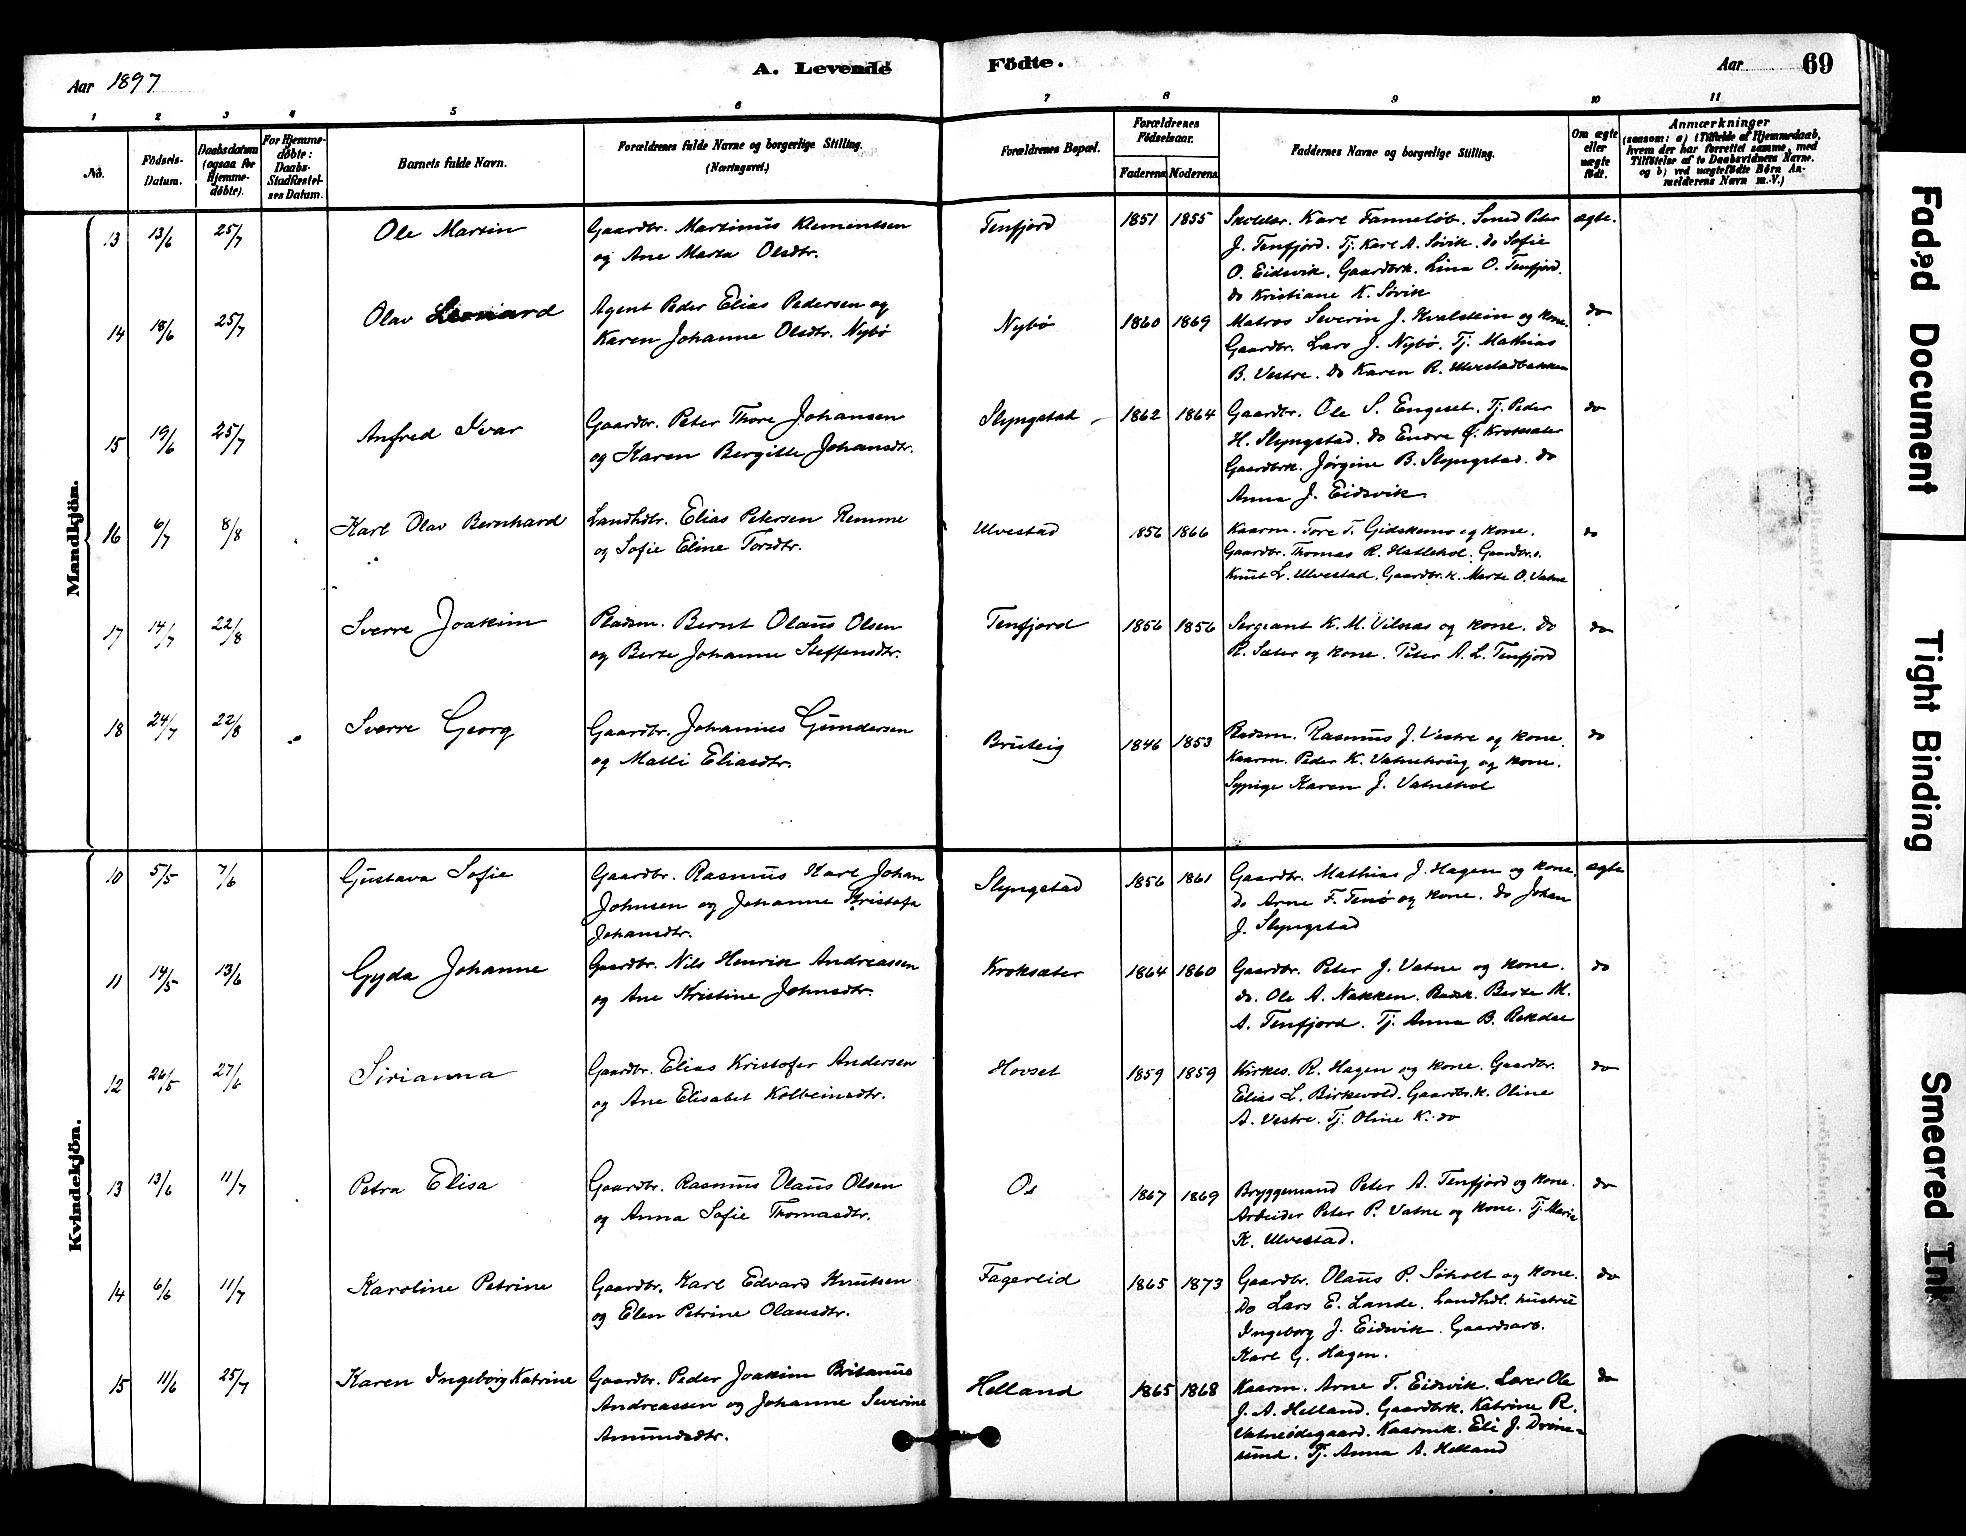 Aar 1897
A. Levende
Födte.
Aar
69
1 2 3 4 5 6 7 8 9 10 11
No.
Födsels-Datum.
Daabsdatum (ogsaa for Hjemme-döbte).
For Hjemme-döbte: Daabs-Stadfæstel-ses Datum.
Barnets fulde Navn.
Forældrenes fulde Navne og borgerlige Stilling. (Næringsvei.)
Forældrenes Bopæl.
Forældrenes Födselsaar.
Faderens Moderens
Faddernes Navne og borgerlige Stilling.
Om ægte eller uægte födt.
Anmærkninger
(saasom: a) i Tilfælde af Hjemmedaab, hvem der har forrettet samme, med Tilföielse af to Daabsvidners Navne, og b) ved uægtefödte Börn Anmelderens Navn m. V.)
Mandkjön.
13 13/6 25/7 Ole Martin Gaardbr. Martinus Klementsen Tenfjord 1851 1855 Karl Fanneløb. Smed Peter ægte.
og Ane Marta Olsdtr. J. Tenfjord. Tj. Karl A. Søvik. do Sofie
O. Eidsvik. Gaardbrk. Lina O. Tenfjord.
do Kristiane K. Søvik
14 18/6 25/7 Olav Leonard Agent Peder Elias Pedersen og Nybø 1860 1869 Matros Severin J. Kvalstein og kone. do
Karen Johanne Olsdtr. Nybø Gaardbr. Lars J. Nybø. Tj. Mathias
B. Vestre. do Karen R. Ulvestadbakken
15 19/6 25/7 Anfred Ivar Gaardbr. Peter Thore Johansen Slyngstad 1862 1864 Gaardbr. Ole S. Engeset. Tj. Peder do
og Karen Bergitte Johansdtr. H. Slyngstad. do Endre J. Kroksæter
Gaardbrk. Jørgine B. Slyngstad. do
Anna J. Eidsvik
16 6/7 8/8 Karl Olav Bernhard Landhdlr. Elias Petersen Remme Ulvestad 1856 1866 Kaarm. Tore T. Gidskemo og kone. do
og Sofie Eline Torsdtr. Gaardbr. Thomas R. Hatlehol. Gaardbr.
Knut L. Ulvestad. Gaardbr.k. Marte O. Vatne
17 14/7 22/8 Sverre Joakim Pladsm. Bernt Olaus Olsen Tenfjord 1856 1856 Sergeant K. M. Vilnæs og kone. do do
og Berte Johanne Steffensdtr. R. Sæter og kone. Peter A. L. Tenfjord
18 24/7 22/8 Sverre Georg Gaardbr. Johannes Gundersen Bruteig 1846 1853 Rasmus J. Vestre og kone. do
og Malli Eliasdtr. Kaarm. Peder K. Vatnehaug og kone.
Sypige Karen J. Vatnehol
Kvindekjön.
10 5/5 7/6 Gustava Sofie Gaardbr. Rasmus Karl Johan Slyngstad 1856 1861 Gaardbr. Mathias J. Hagen og kone. ægte
Johnsen og Johanne Kristofa do Arne F. Tenø og kone. do Johan
Johansdtr. J. Slyngstad
11 14/5 13/6 Gyda Johanne Gaardbr. Nils Henrik Andreassen Kroksæter 1864 1860 Gaardbr. Peter J. Vatne og kone. do
og Ane Kristine Johnsdtr. do. Ole A. Nakken. Berte M.
A. Tenfjord. Tj. Anna B. Rekdal
12 26/5 27/6 Sirianna Gaardbr. Elias Kristofer Andersen Hovset 1859 1859 Kirkes. R. Hagen og kone. Gaardbr. do
og Ane Elisabet Kolbeinsdtr. Elias L. Birkevold. Gaardbr.k. Oline
A. Vestre. Tj. Oline K. do
13 13/6 11/7 Petra Elisa Gaardbr. Rasmus Olaus Olsen Os 1867 1869 Bryggemand Peter A. Tenfjord og kone. do
og Anna Sofie Thomasdtr. Arbeider Peter P. Vatne og kone. Tj. Marie
K. Ulvestad.
14 6/6 11/7 Karoline Petrine Gaardbr. Karl Edvard Knutsen Fagerlid 1865 1873 Gaardbr. Olaus P. Søholt og kone. do
og Elen Petrine Olausdtr. Do Lars E. Lande. Landhdl. hustru
Ingeborg J. Eidsvik. Gaardsarb.
Karl G. Hagen.
15 11/6 25/7 Karen Ingeborg Katrine Gaardbr. Peder Joakim Britanus Helland 1865 1868 Kaarm. Arne T. Eidsvik. Lærer Ole do
Andreassen og Johanne Severine J. A. Helland. Gaardbrk. Katrine R.
Amundsdtr. Vatneødegaard. Kaarmk. Eli J. Drøne-
sund. Tj. Anna A. Helland
Faded Document
Tight Binding
Smeared Ink